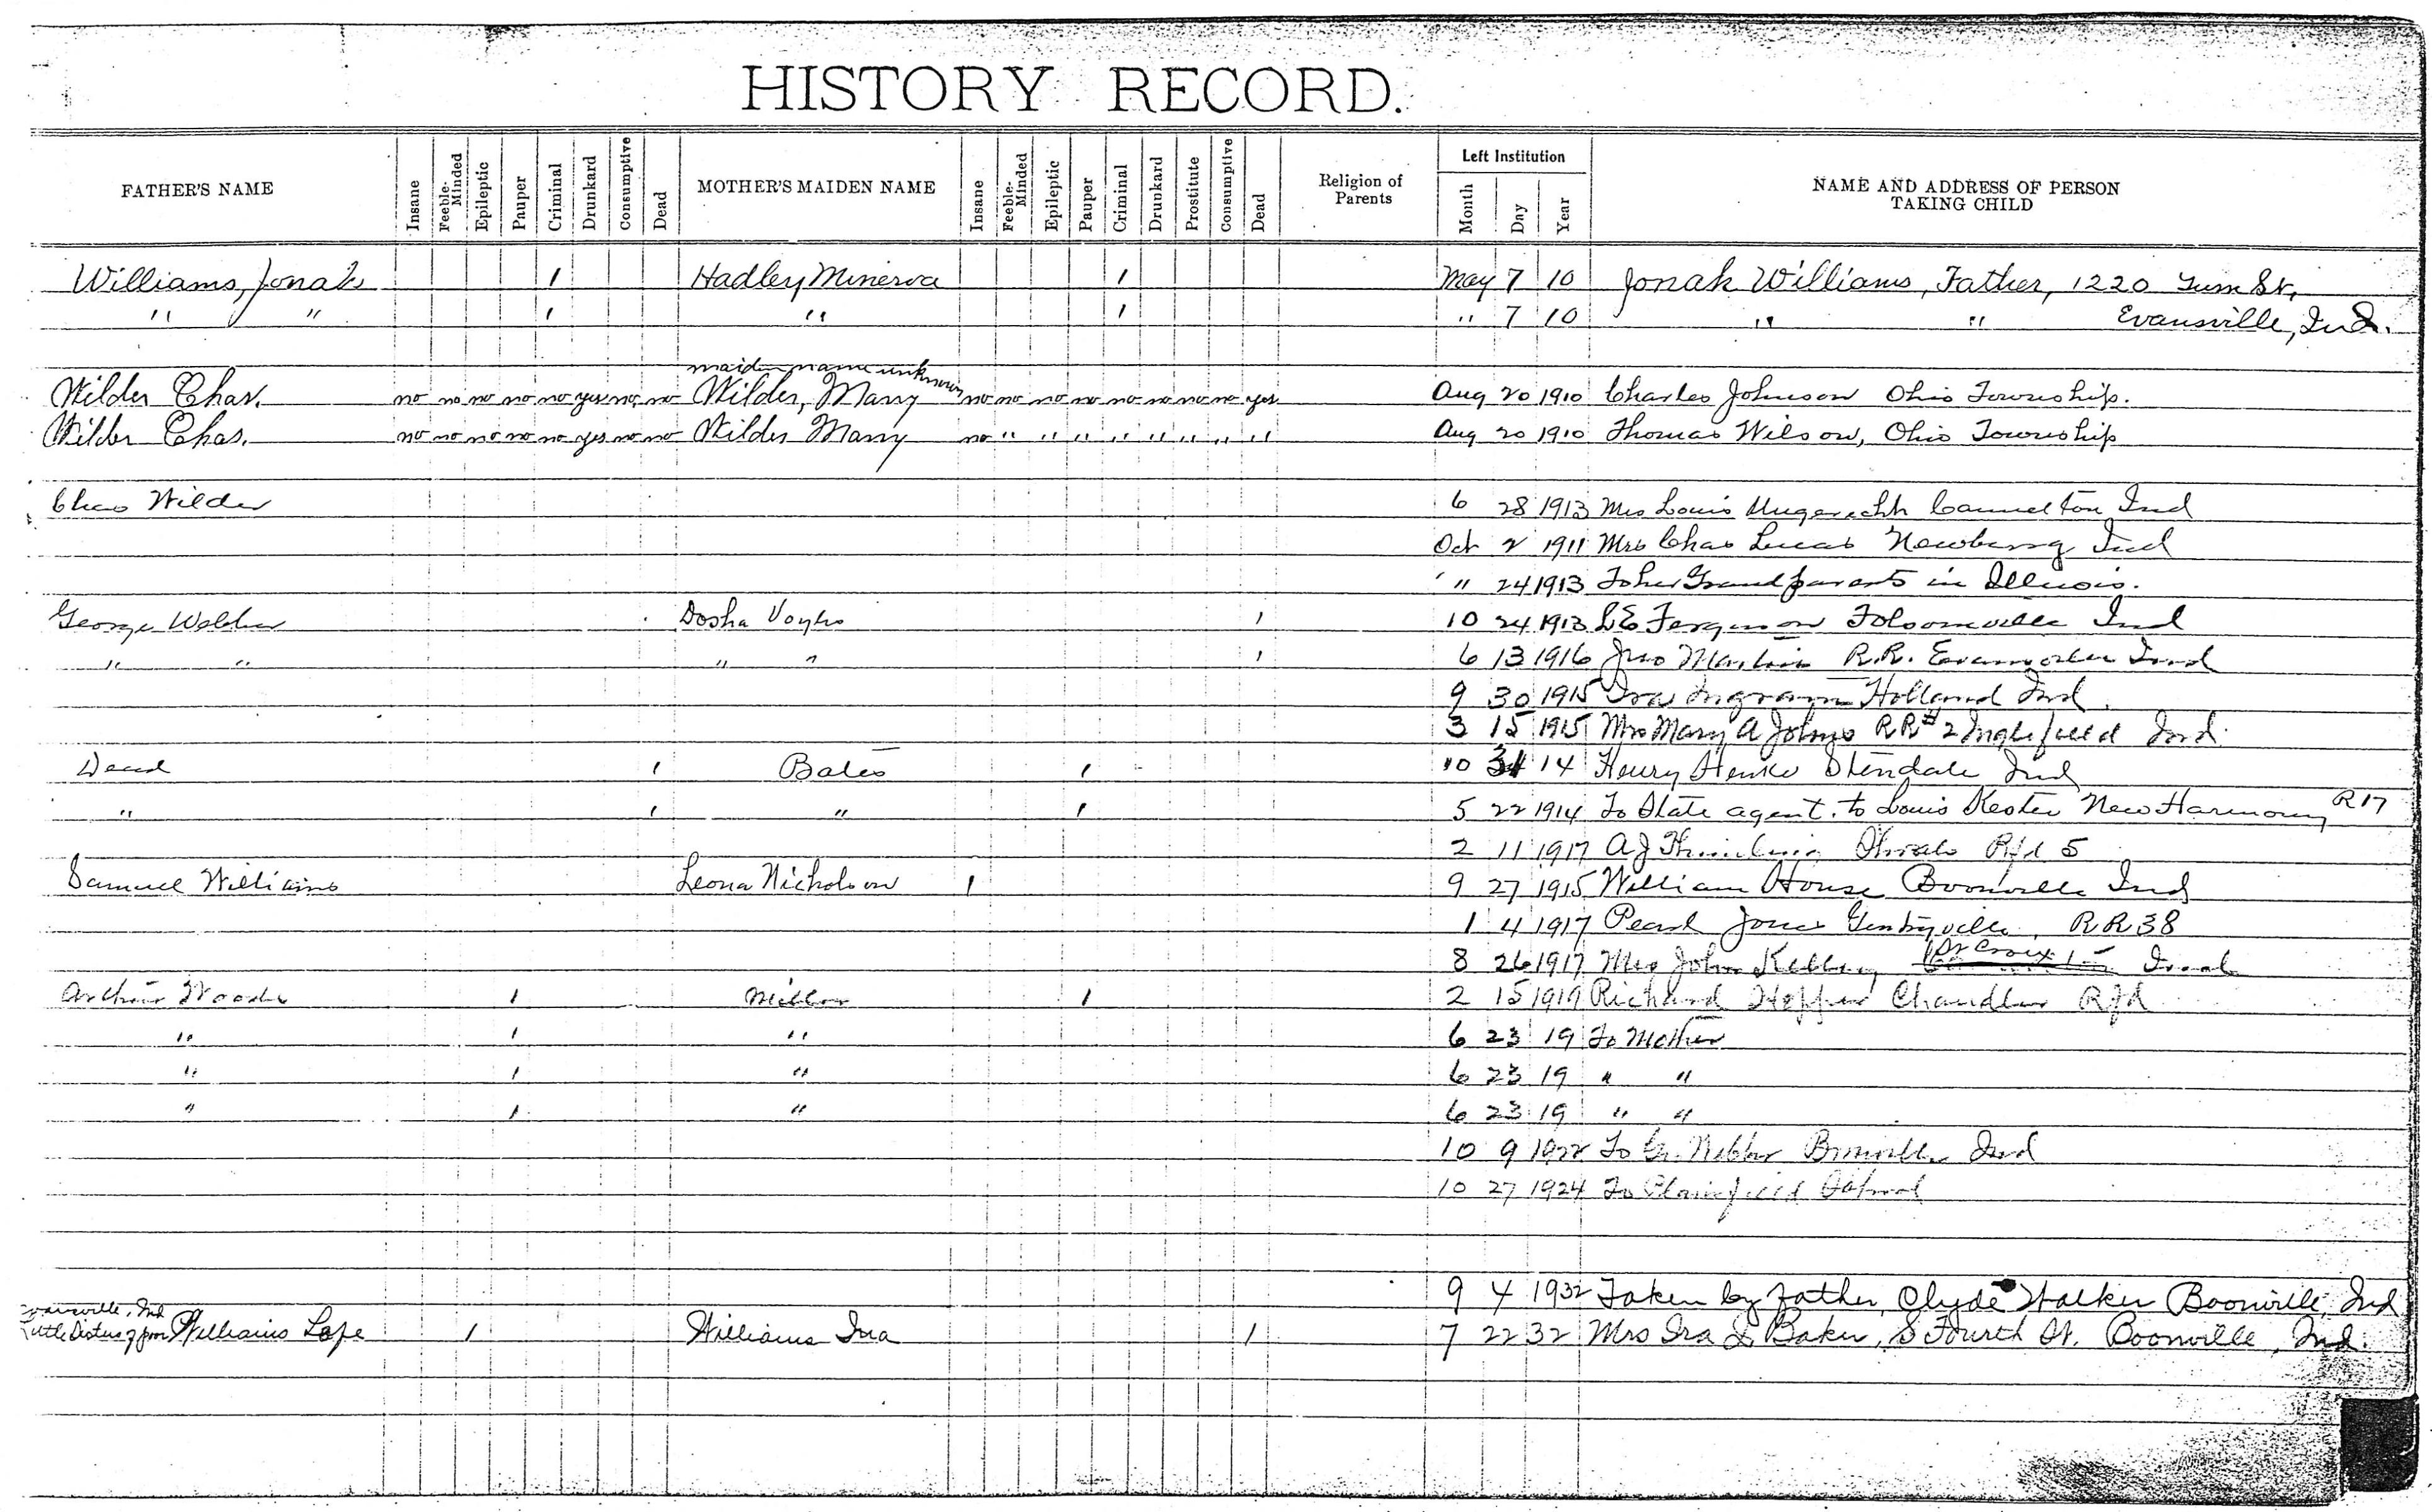 HISTORY RECORD.
FATHER'S NAME Insane Feeble-Minded Epileptic Pauper Criminal Drunkard Consumptive Dead MOTHER'S MAIDEN NAME Insane Feeble-Minded Epileptic Pauper Criminal Drunkard Prostitute Consumptive Dead Religion of Parents Left Institution Month Day Year NAME AND ADDRESS OF PERSON TAKING CHILD
Williams, Jonah 1 Hadley Minerva 1 May 7 10 Jonah Williams, Father, 1220 St,
" " 1 " 1 " 7 10 " " Evansville, Ind.
maiden name unknown
Wilder Chas. no no no no no yes no no Wilder, Mary no no no no no no no no yes Aug 20 1910 Charles Johnson Ohio Township.
Wilder Chas. no no no no no yes no no Wilder Mary no " " " " " " " " Aug 20 1910 Thomas Wilson, Ohio Township
Chas Wilder 6 28 1913 Mrs Louis Cannelton Ind
Oct 2 1911 Mrs Chas Lucas Newburg Ind
" 24 1913 To her Grandparents in Illinois.
George Dosha 1 10 24 1913 L E Ferguson Folsomville Ind
" " " " 1 6 13 1916 Jno Martin R.R. Evansville Ind
9 30 1915 Ira Ingram Holland Ind.
3 15 1915 Mrs Mary A Johns RR #2 Inglefield Ind.
Dead 1 Bates 1 10 31 14 Henry Henke Stendale Ind
" 1 " 1 5 22 1914 To State agent. to Louis Kester New Harmony R17
2 11 1917 A J Rfd 5
Samuel Williams Leona Nicholson 1 9 27 1915 William House Boonville Ind
1 4 1917 Pearl Jones Gentryville, RR 38
8 26 1917 Mrs John Kelley Ind
Arthur Woods 1 Miller 1 2 15 1919 Richard Chandler Rfd
" 1 " 6 23 19 To Mother
" 1 " 6 23 19 " "
" 1 " 6 23 19 " "
10 9 1922 To Boonville Ind
10 27 1924 To Plainfield
9 4 1932 Taken by father, Clyde Walker Boonville, Ind
Evansville, Ind
Williams Lafe 1 Williams Ina 1 7 22 32 Mrs Ira L Baker, S Fourth St. Boonville, Ind.